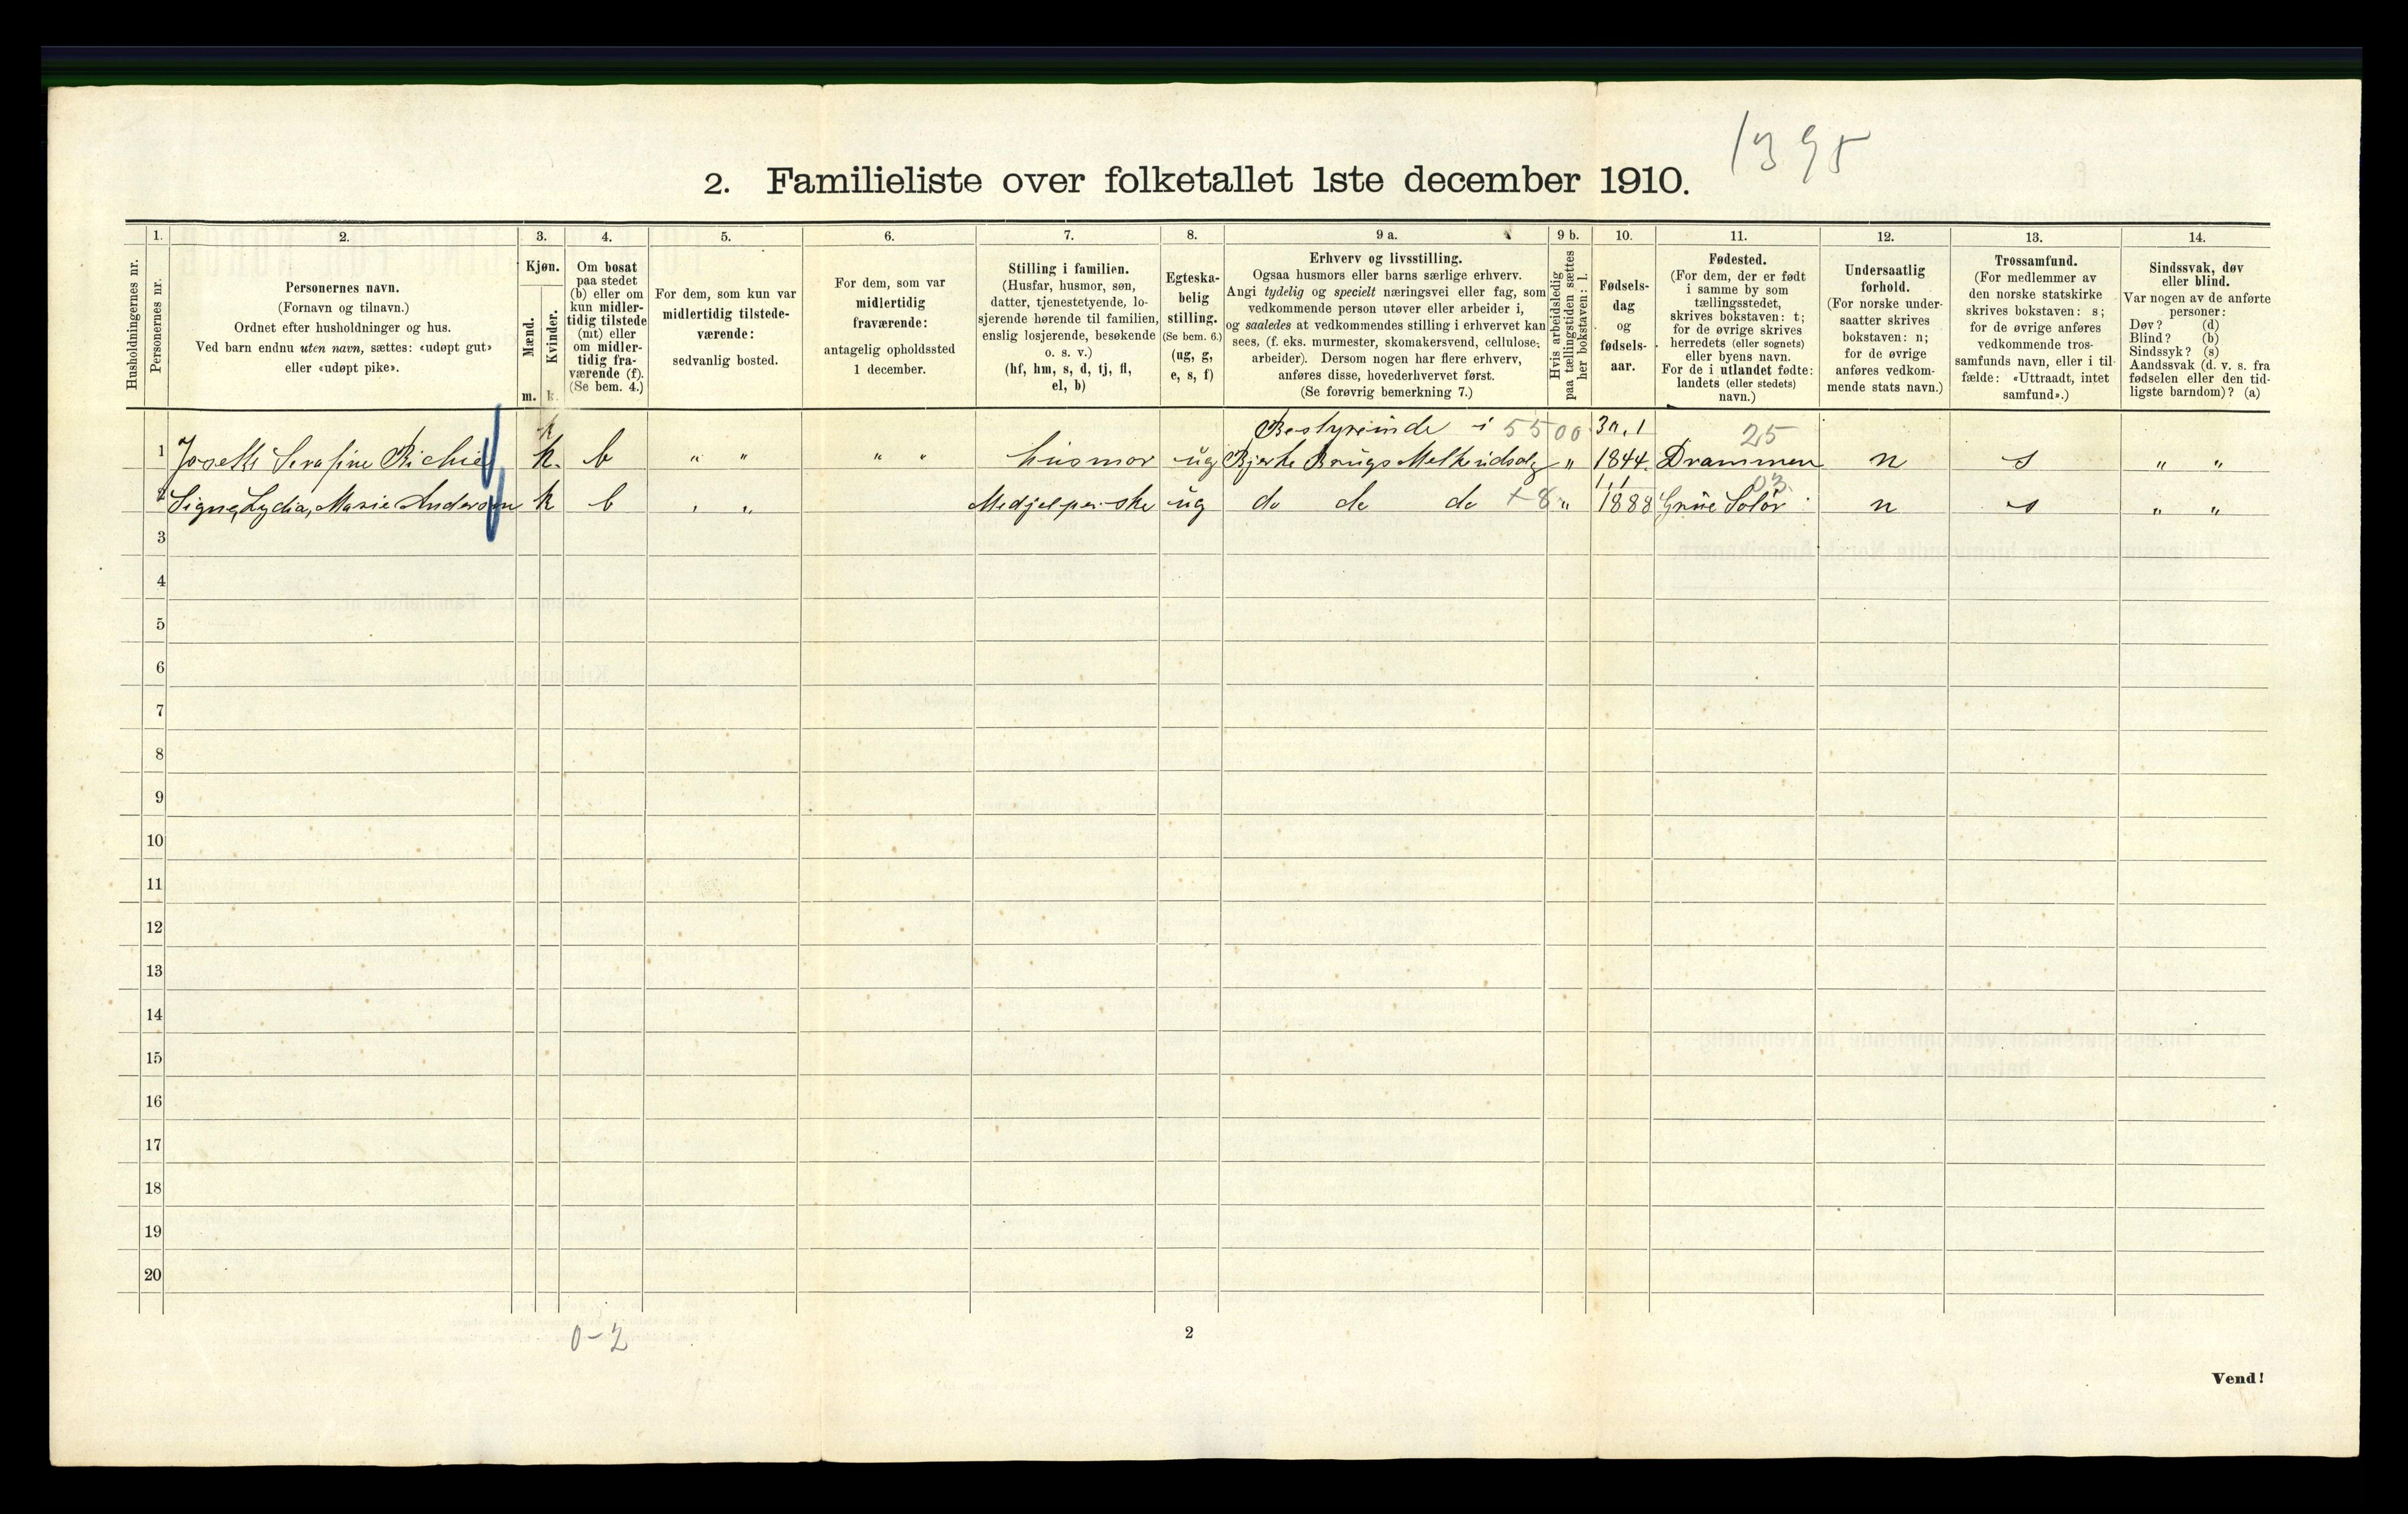 1395
2. Familieliste over folketallet 1ste december 1910.
Husholdningernes nr.
1. Personernes nr.
2. Personernes navn.
(Fornavn og tilnavn.)
Ordnet efter husholdninger og hus.
Ved barn endnu uten navn, sættes: «udøpt gut»
eller «udøpt pike».
3. Kjøn.
Mænd. m.
Kvinder. k.
4. Om bosat
paa stedet
(b) eller om
kun midler-
tidig tilstede
(mt) eller
om midler-
tidig fra-
værende (f).
(Se bem. 4.)
5. For dem, som kun var
midlertidig tilstede-
værende:
sedvanlig bosted.
6. For dem, som var
midlertidig
fraværende:
antagelig opholdssted
1 december.
7. Stilling i familien.
(Husfar, husmor, søn,
datter, tjenestetyende, lo-
sjerende hørende til familien,
enslig losjerende, besøkende
o. s. v.)
(hf, hm, s, d, tj, fl,
el, b)
8. Egteska-
belig
stilling.
(Se bem. 6.)
(ug, g,
e, s, f)
9 a. Erhverv og livsstilling.
Ogsaa husmors eller barns særlige erhverv.
Angi tydelig og specielt næringsvei eller fag, som
vedkommende person utøver eller arbeider i,
og saaledes at vedkommendes stilling i erhvervet kan
sees, (f. eks. murmester, skomakersvend, cellulose-
arbeider). Dersom nogen har flere erhverv,
anføres disse, hovederhvervet først.
(Se forøvrig bemerkning 7.)
9 b. Hvis arbeidsledig
paa tællingstiden sættes
her bokstaven: l.
10. Fødsels-
dag
og
fødsels-
aar.
11. Fødested.
(For dem, der er født
i samme by som
tællingsstedet,
skrives bokstaven: t;
for de øvrige skrives
herredets (eller sognets)
eller byens navn.
For de i utlandet fødte:
landets (eller stedets)
navn.)
12. Undersaatlig
forhold.
(For norske under-
saatter skrives
bokstaven: n;
for de øvrige
anføres vedkom-
mende stats navn.)
13. Trossamfund.
(For medlemmer av
den norske statskirke
skrives bokstaven: s;
for de øvrige anføres
vedkommende tros-
samfunds navn, eller i til-
fælde: «Uttraadt, intet
samfund».)
14. Sindssvak, døv
eller blind.
Var nogen av de anførte
personer:
Døv? (d)
Blind? (b)
Sindssyk? (s)
Aandssvak (d. v. s. fra
fødselen eller den tid-
ligste barndom)? (a)
k Bestyrerinde i 5500 30.1 25
1 Josette Serafine k. b " " " " husmor ug Bjerke Brugs Melkeudsalg " 1844. Drammen n s " "
1,1 03
2 Signe, Lydia, Marie Anderson k b " " Medjelperske ug do do do + 8 " 1888 Grue Solør n s " "
3
4
5
6
7
8
9
10
11
12
13
14
15
16
17
18
19
20
0-2
2
Vend!